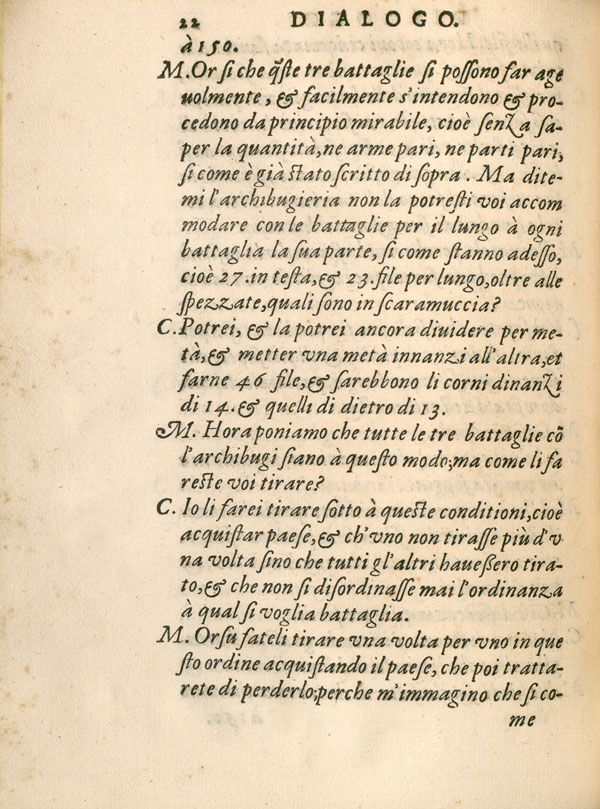 22 DIALOGO.
à 150.
M. Or si che q̃ste tre battaglie si possono far age
uolmente, & facilmente s'intendono & pro-
cedono da principio mirabile, cioè senza sa-
per la quantità, ne arme pari, ne parti pari,
si come è già stato scritto di sopra. Ma dite-
mi l'archibugieria non la potresti voi accom
modare con le battaglie per il lungo à ogni
battaglia la sua parte, si come stanno adesso,
cioè 27. in testa, & 23. file per lungo, oltre alle
spezzate, quali sono in scaramuccia?
C. Potrei, & la potrei ancora diuidere per me-
tà, & metter vna metà innanzi all'altra, et
farne 46 file, & sarebbono li corni dinanzi
di 14. & quelli di dietro di 13.
M. Hora poniamo che tutte le tre battaglie cõ
l'archibugi siano à questo modo; ma come li fa
reste voi tirare?
C. Io li farei tirare sotto à queste conditioni, cioè
acquistar paese, & ch'vno non tirasse più d'v
na volta sino che tutti gl'altri haueßero tira-
to, & che non si disordinasse mai l'ordinanza
à qual si voglia battaglia.
M. Orsu fateli tirare vna volta per vno in que
sto ordine acquistando il paese, che poi tratta-
rete di perderlo; perche m'immagino che si co-
me